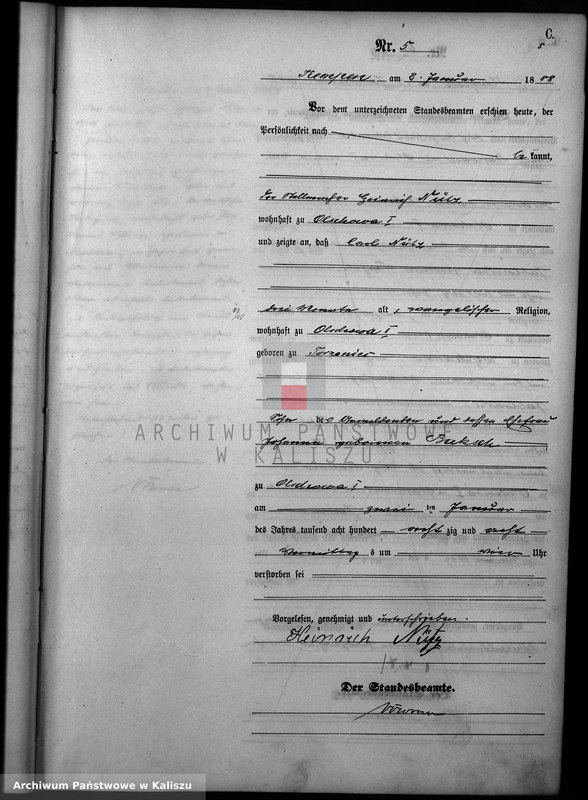 C.
Nr. 5
5
Kempen am 2. Januar 1888
Vor dem unterzeichneten Standesbeamten erschien heute, der
Persönlichkeit nach
be kannt,
der Heinrich Nütz
wohnhaft zu Olschowa I
und zeigte an, daß Carl Nütz
drei Monate alt, evangelischer Religion,
wohnhaft zu Olschowa I
geboren zu
Sohn des Anmeldenden und dessen Ehefrau
Johanna geborenen
zu Olschowa I
am zwei ten Januar
des Jahres tausend acht hundert acht zig und acht
Vormittag s um vier Uhr
verstorben sei
Vorgelesen, genehmigt und unterschrieben.
Heinrich Nütz
Der Standesbeamte.
ARCHIWUM PAŃSTWOWE
W KALISZU
Archiwum Państwowe w Kaliszu